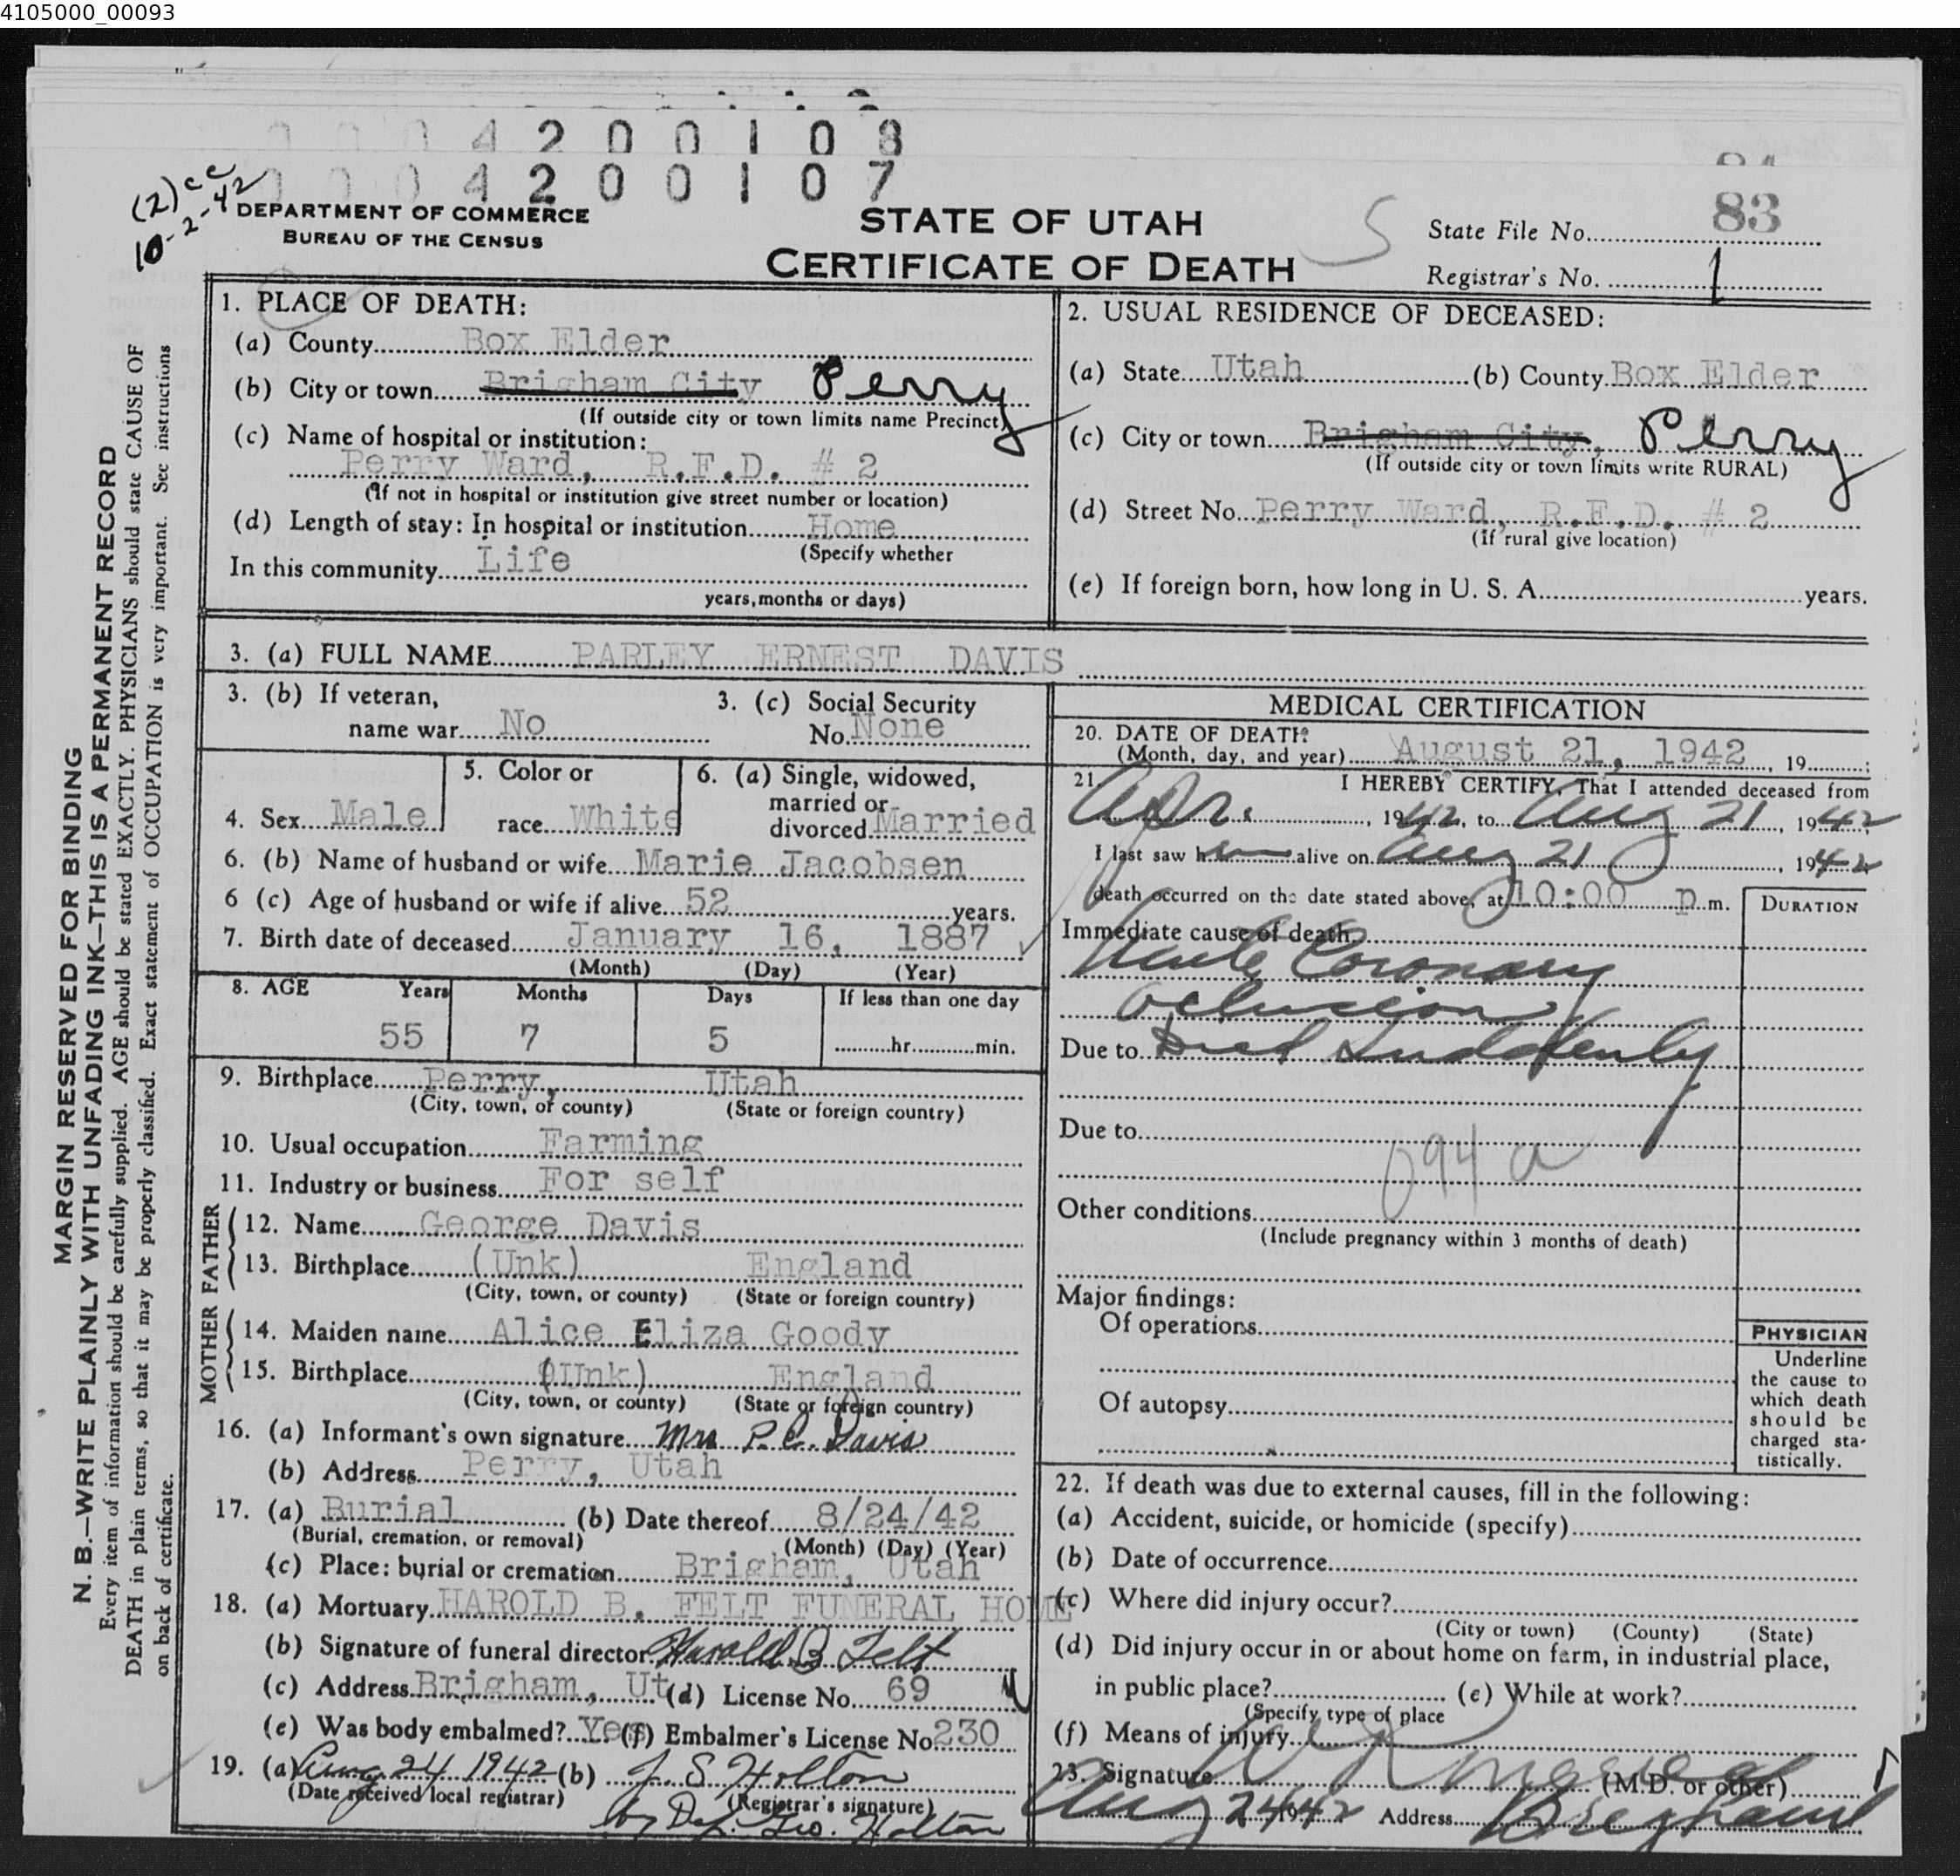 4105000_00093
0004200108
0004200107
(2) cc
10-2-42
DEPARTMENT OF COMMERCE
BUREAU OF THE CENSUS
STATE OF UTAH
CERTIFICATE OF DEATH
S
State File No. 83
Registrar's No. 1
MARGIN RESERVED FOR BINDING
N. B.—WRITE PLAINLY WITH UNFADING INK—THIS IS A PERMANENT RECORD
Every item of information should be carefully supplied. AGE should be stated EXACTLY. PHYSICIANS should state CAUSE OF
DEATH in plain terms, so that it may be properly classified. Exact statement of OCCUPATION is very important. See instructions
on back of certificate.
1. PLACE OF DEATH:
(a) County Box Elder
(b) City or town Brigham City Perry
(If outside city or town limits name Precinct)
(c) Name of hospital or institution:
Perry Ward, R.F.D. # 2
(If not in hospital or institution give street number or location)
(d) Length of stay: In hospital or institution Home
(Specify whether
In this community Life
years, months or days)
2. USUAL RESIDENCE OF DECEASED:
(a) State Utah (b) County Box Elder
(c) City or town Brigham City, Perry
(If outside city or town limits write RURAL)
(d) Street No. Perry Ward, R.F.D. # 2
(If rural give location)
(e) If foreign born, how long in U. S. A. years.
3. (a) FULL NAME PARLEY ERNEST DAVIS
3. (b) If veteran,
name war No
3. (c) Social Security
No. None
4. Sex Male
5. Color or
race White
6. (a) Single, widowed,
married or
divorced Married
6. (b) Name of husband or wife Marie Jacobsen
6 (c) Age of husband or wife if alive 52 years.
7. Birth date of deceased January 16, 1887
(Month) (Day) (Year)
8. AGE Years Months Days If less than one day
55 7 5 hr. min.
9. Birthplace Perry, Utah
(City, town, or county) (State or foreign country)
10. Usual occupation Farming
11. Industry or business For self
FATHER
12. Name George Davis
13. Birthplace (Unk) England
(City, town, or county) (State or foreign country)
MOTHER
14. Maiden name Alice Eliza Goody
15. Birthplace (Unk) England
(City, town, or county) (State or foreign country)
16. (a) Informant's own signature Mrs P. E. Davis
(b) Address Perry, Utah
17. (a) Burial (b) Date thereof 8/24/42
(Burial, cremation, or removal) (Month) (Day) (Year)
(c) Place: burial or cremation Brigham, Utah
18. (a) Mortuary HAROLD B. FELT FUNERAL HOME
(b) Signature of funeral director Harold B Felt
(c) Address Brigham, Ut (d) License No. 69
(e) Was body embalmed? Yes (f) Embalmer's License No. 230
19. (a) Aug 24 1942 (b) J. S. Holton
(Date received local registrar) (Registrar's signature)
by Dep. Geo. Holton
MEDICAL CERTIFICATION
20. DATE OF DEATH:
(Month, day, and year) August 21, 1942, 19
21. I HEREBY CERTIFY, That I attended deceased from
Apr. , 1942, to Aug 21, 1942
I last saw him alive on Aug 21, 1942
death occurred on the date stated above, at 10:00 p.m.
DURATION
Immediate cause of death
Acute Coronary
Occlusion
Due to Died Suddenly
Due to
094 a
Other conditions
(Include pregnancy within 3 months of death)
Major findings:
Of operations
Of autopsy
PHYSICIAN
Underline
the cause to
which death
should be
charged sta-
tistically.
22. If death was due to external causes, fill in the following:
(a) Accident, suicide, or homicide (specify)
(b) Date of occurrence
(c) Where did injury occur?
(City or town) (County) (State)
(d) Did injury occur in or about home on farm, in industrial place,
in public place? (e) While at work?
(Specify type of place
(f) Means of injury
23. Signature (M.D. or other)
Aug 24 1942 Address Brigham